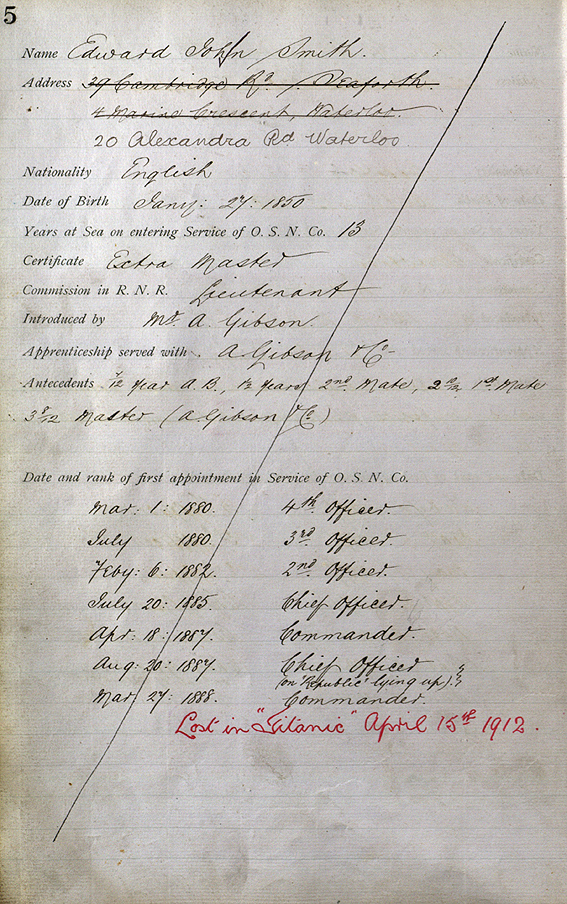 5
Name Edward John Smith.
Address 39 Cambridge Rd. Seaforth.
4 Marine Crescent, Waterloo.
20 Alexandra Rd Waterloo
Nationality English
Date of Birth Jany: 27: 1850
Years at Sea on entering Service of O. S. N. Co. 13
Certificate Extra Master
Commission in R. N. R. Lieutenant
Introduced by Mr. A. Gibson.
Apprenticeship served with A. Gibson & Co
Antecedents year A.B., 1½ years 2nd Mate, 1st Mate
Master (A Gibson & Co)
Date and rank of first appointment in Service of O. S. N. Co.
Mar: 1: 1880. 4th Officer.
July 1880. 3rd Officer.
Feby: 6: 1882. 2nd Officer.
July 20: 1885. Chief Officer.
Apr: 18: 1887. Commander.
Aug: 20: 1887. Chief Officer
(on "Republic" lying up)
Mar: 27: 1888. Commander.
Lost in "Titanic" April 15th 1912.